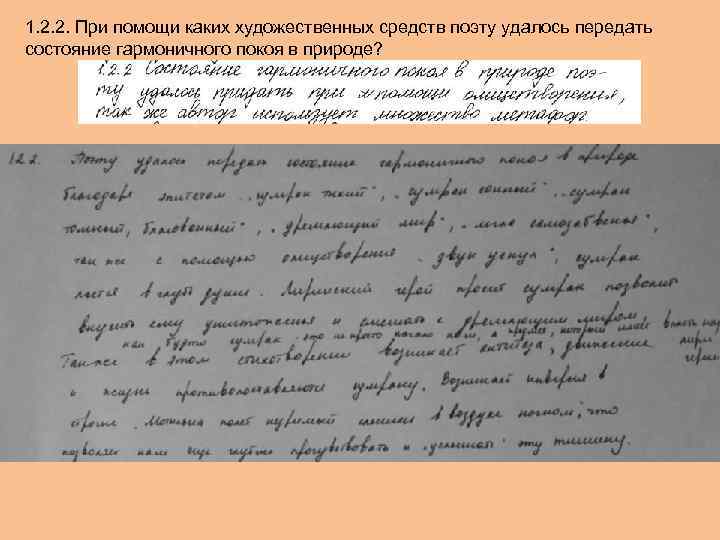 1. 2. 2. При помощи каких художественных средств поэту удалось передать
состояние гармоничного покоя в природе?
1.2.2 Состояние гармоничного покоя в природе поэ-
ту удалось придать при помощи олицетворения,
так же автор использует множество метафор.
1.2.2. Поэту удалось передать состояние гармоничного покоя в природе
благодаря эпитетам „сумрак тихий", „сумрак сонный", „сумрак
томный, благовонный", „дремлющий мир", „мгла самозабвенья",
также с помощью олицетворения „звук уснул", сумрак
льется в глубь души. Лирический герой просит сумрак позволить
вкусить ему уничтоженья и смешать с дремлющим миром,
как будто сумрак - это не просто начало ночи, а
Также в этом стихотворении возникает антитеза, движение
и жизнь противопоставляются сумраку. Возникает инверсия в
строке „Мотылька полет незримый слышен в воздухе ночном", что
позволяет нам еще глубже прочувствовать и „услышать" эту тишину.